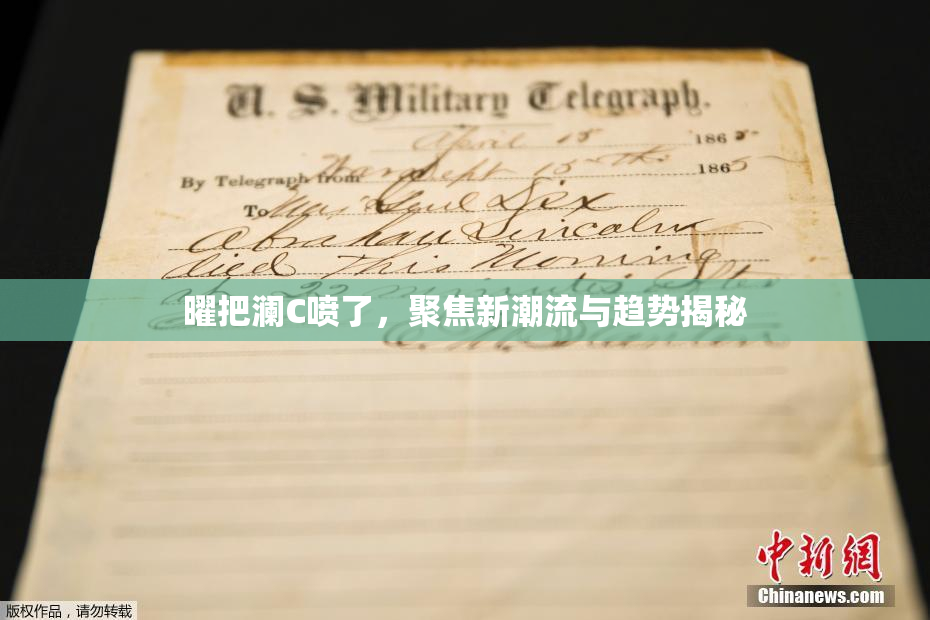 U. S. Military Telegraph.
April 15 1865
By Telegraph from War Dept 15th 1865
To Maj Genl Dix
Abraham Lincoln
died This Morning
at 22 minutes after
曜把澜C喷了，聚焦新潮流与趋势揭秘
E. M. Stanton
中新网
Chinanews.com
版权作品，请勿转载